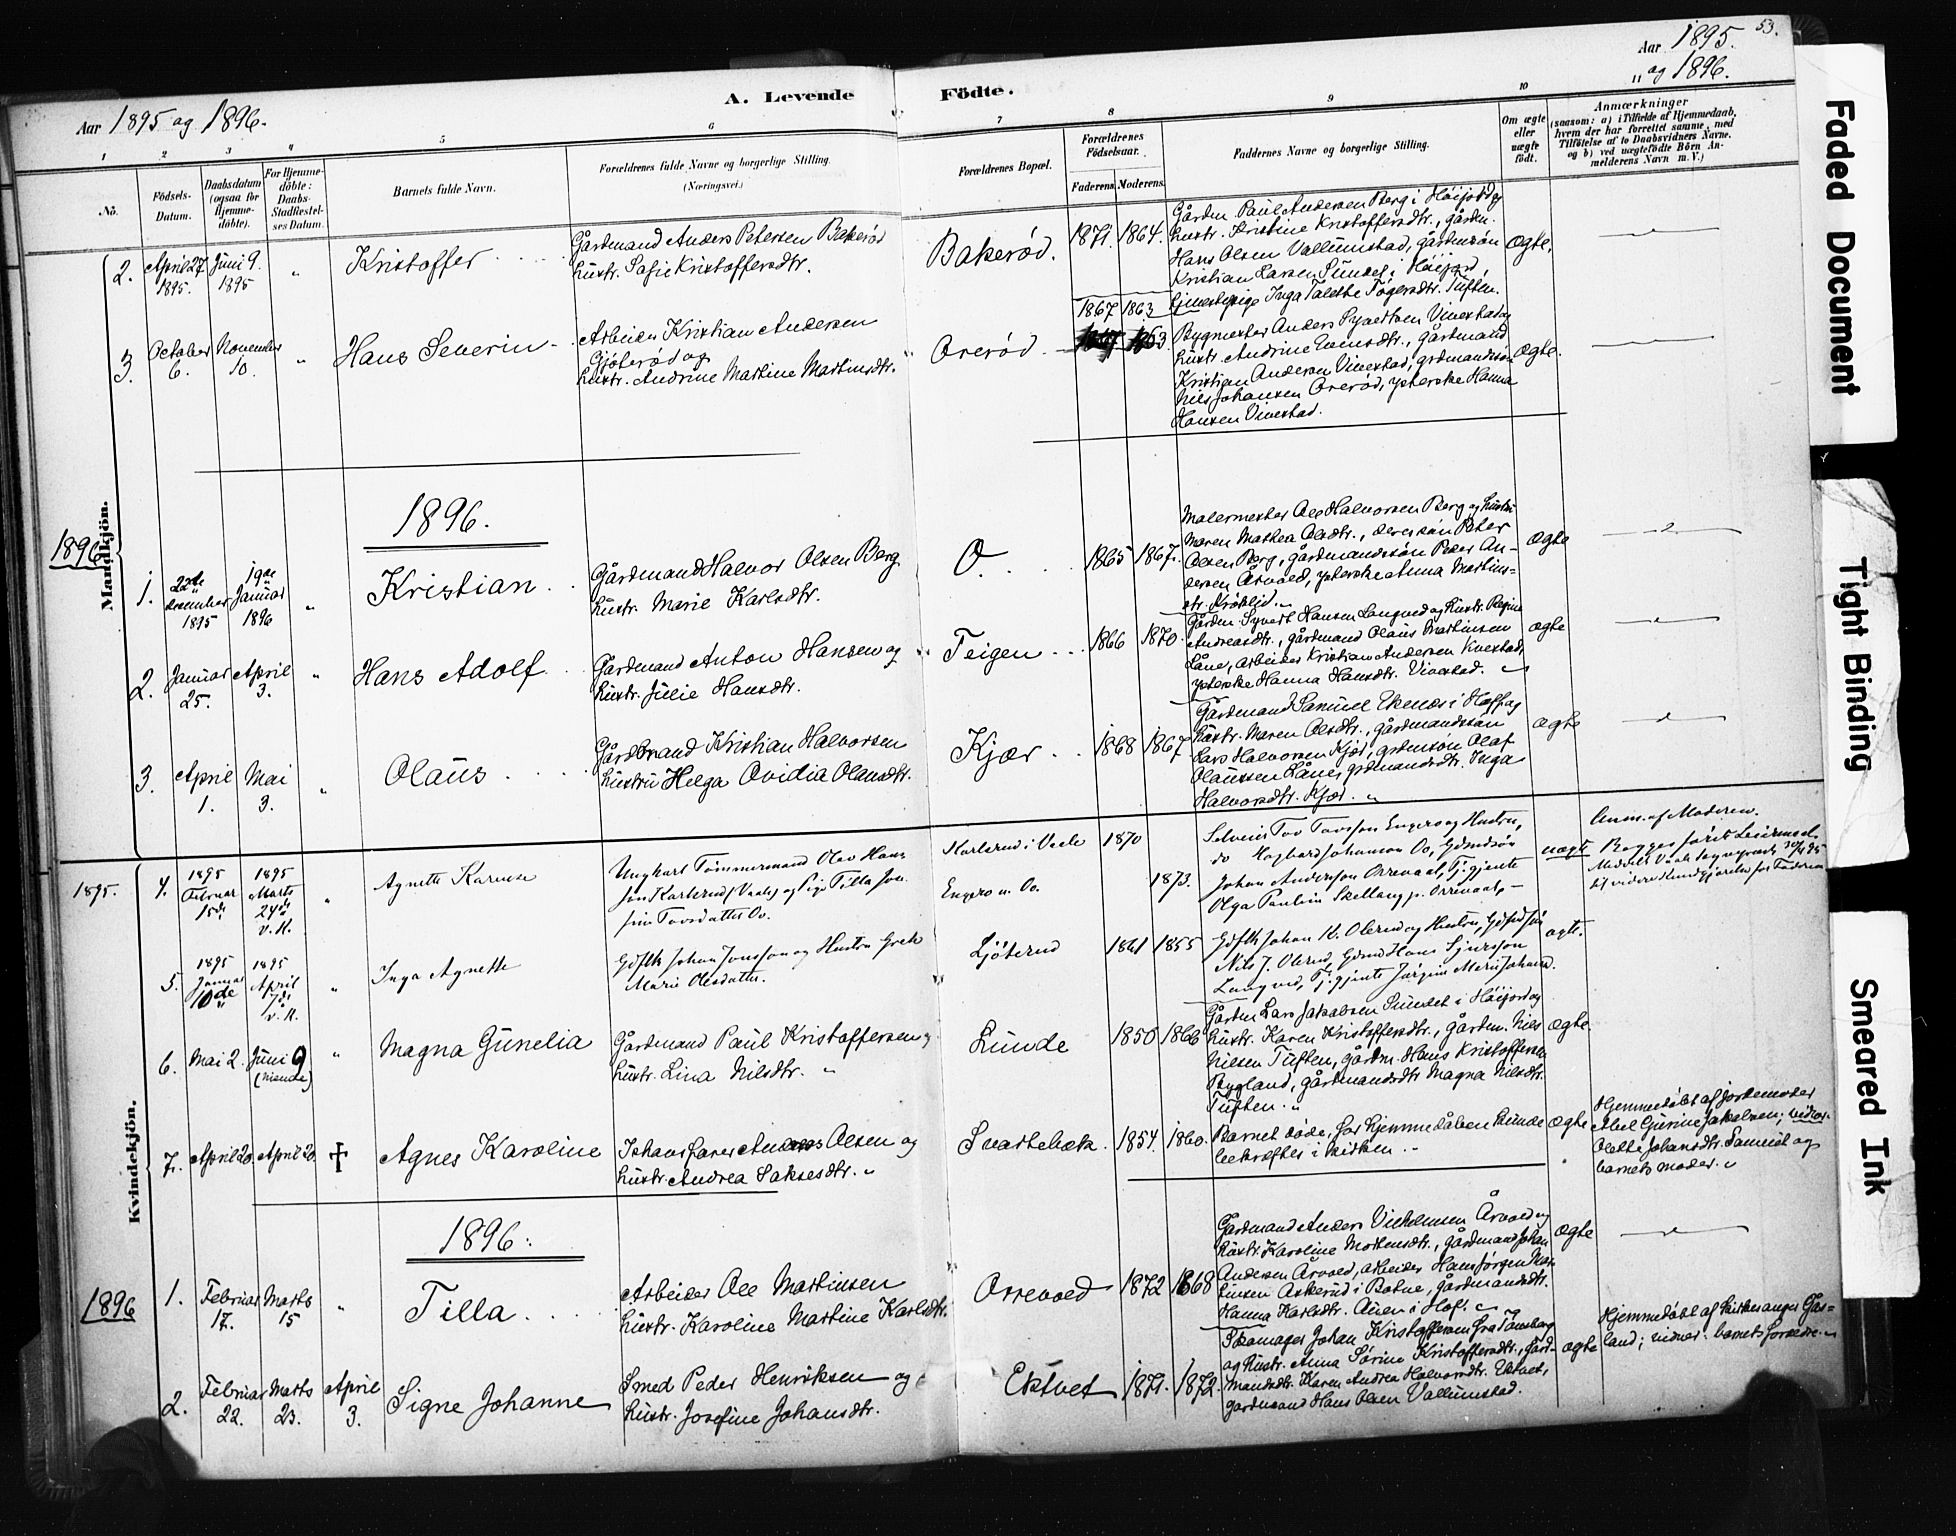 53.
Aar 1895 og 1896.
A. Levende Födte.
Aar 1895.
" og 1896.
1 2 3 4 5 6 7 8 9 10
No.
Födsels-
Datum.
Daabsdatum
(ogsaa for
Hjemme-
döbte).
For Hjemme-
döbte:
Daabs-
Stadfæstel-
ses Datum.
Barnets fulde Navn.
Forældrenes fulde Navne og borgerlige Stilling.
(Næringsvei.)
Forældrenes Bopæl.
Forældrenes
Födselsaar.
Faderens. Moderens.
Faddernes Navne og borgerlige Stilling.
Om ægte
eller
uægte
födt.
Anmærkninger
(saasom: a) i Tilfælde af Hjemmedaab,
hvem der har forrettet samme, med
Tilföielse af to Daabsvidners Navne,
og b) ved uægtefödte Börn An-
melderens Navn m. V.)
Mandkjön.
2.
April 27
1895.
Juni 9.
1895
"
Kristoffer
Gårdmand Anders Petersen Bakeröd
hustr. Sofie Kristoffersdtr.
Bakeröd.
1871. 1864.
Gården Paul Andersen Berg i Höijord og
hustr. Kristine Kristoffersdtr., gårdm.
Hans Olsen Vallumstad, gårdmsön
Kristian Larsen Sundet i Höijord,
Inga Talette Tögersdtr. Tuften.
ægte.
3.
October
6.
November
10.
"
Hans Severin
Arbeider Kristian Andersen
Gjöteröd og
hustr. Andrine Martine Martinsdtr.
Oreröd.
1867 1863
Bygmester Anders Syvertsen Vivestad og
hustr. Andrine Evensdtr., gårdmand
Kristian Andersen Vivestad, grdmandssön
Nils Johansen Oreröd, ysterske Hanna
Hansen Vivestad.
ægte.
1896.
1896
1.
22de
december
1895
19de
Januar
1896
"
Kristian
Gårdmand Halvor Olsen Berg
hustr. Marie Karlsdtr.
O.
1865 1867.
Malermester Ole Halvorsen Berg og hustr.
Maren Mathea Olsdtr., deres sön Peter
Olsen Berg, gårdmandssön Peder An-
dersen Årvold, ysterske Anna Martins-
dtr. Kröklid.
ægte
2.
Januar
25.
April
3.
"
Hans Adolf
Gårdmand Anton Hansen og
hustr. Julie Hansdtr.
Teigen
1866 1870.
Gården Syvert Hansen Langved og hustr. Regine
Andreasdtr., gårdmand Olaus Martinsen
Låne, arbeider Kristian Andersen Vivestad,
ysterske Hanna Hansdtr. Vivestad.
ægte
3.
April
1.
Mai
3.
"
Olaüs
Gårdmand Kristian Halvorsen
hustru Helga Ovidia Olausdtr.
Kjær
1868 1867.
Gårdmand Samuel Ekenæs i Hoff og
hustr. Maren Olsdtr., gårdmandssön
Lars Halvorsen Kjær, grdmsön Olaf
Olaussen Låne, grdmandsdtr. Inga
Halvorsdtr. Kjær.
ægte
Kvindekjön.
1895.
4.
1895
Februar
15de
1895
Marts
24de
v. K.
"
Agnette Karense
Ungkarl Tömmermand Olav Hans-
sen Karlsrud (Vaale) og Pige Tilla Jo-
sine Tovsdatter Oo.
Karlsrud i Vaale
Engero u. Oo.
1870
1873.
Selveier Tov Tovsson Engero og Hustru,
do Hagbard Johannson Oo, Gdmdssön
Johan Andersson Orrevaal, Tj.gjente
Olga Pauline Skellaug p. Orrevaal,
uægt
Anm. af Moderen.
Begges förste Leiermaal.
Meddelt Vaale Sognepræst 30/4 95
til videre Kundgjörelse for Faderen
5.
1895
Januar
10de
1895
April
7de
v. K.
"
Inga Agnette
Gdflk Johan Jonsson og Hustru Grete
Marie Olesdatter.
Ljöterud
1861 1855
Gdflk Johan K. Olerud og Hustru, Gdmdssön
Nils J. Olerud, Gdmd Hans Sjursson
Langved, Tj.gjente Jörgine Marie Johansd.
ægt.
6.
Mai 2.
Juni 9
(niende)
"
Magna Gunelia
Gårdmand Paul Kristoffersen og
hustr. Lina Nilsdtr.
Lunde
1850 1866
Gården Lars Jakobsen Sundet i Höijord og
hustr. Karen Kristoffersdtr., gårdm. Nils
Nilsen Tuften, gårdm. Hans Kristoffersen
Bygland, gårdmandsdtr Magna Nilsdtr.
Tuften.
ægte
7.
April 20.
April 20.
†
Agnes Karoline
Anders Olsen og
hustr. Andrea Saksesdtr.
Svartebæk.
1854. 1860.
Barnet döde, för hjemmedåben kunde
bekræftes i kirken.
ægte
Hjemmedöbt af jordemoder
Abel Gurine Jakobsen; vidner
Olette Johansdtr. Sanniöl og
barnets moder.
1896.
1896
1.
Februar
17.
Marts
15
"
Tilla
Arbeider Ole Martinsen
hustr. Karoline Martine Karlsdtr.
Orrevold
1872 1868
Gårdmand Anders Vilhelmsen Årvold og
hustr. Karoline Mortensdtr., gårdmand Johan
Andersen Årvold, arbeider Hans Jørgen Mar-
tinsen Askerud i Botne, gårdmandsdtr.
Hanna Karlsdtr. Auen i Hof.
ægte
2.
Februar
22.
Marts
23.
April
3.
Signe Johanne
Smed Peder Henriksen og
hustr. Josefine Johansdtr.
Ektvet
1871. 1872.
Skomager Johan Kristoffersen fra Tönsberg
og hustr. Anna Sörine Kristoffersdtr., gård-
mandsdtr. Karen Andrea Halvorsdtr. Ektvet,
gårdmand Hans Olsen Vallumstad.
ægte
Hjemmedöbt af kirkesanger Gas-
land; vidner: barnets forældre.
Faded Document
Tight Binding
Smeared Ink